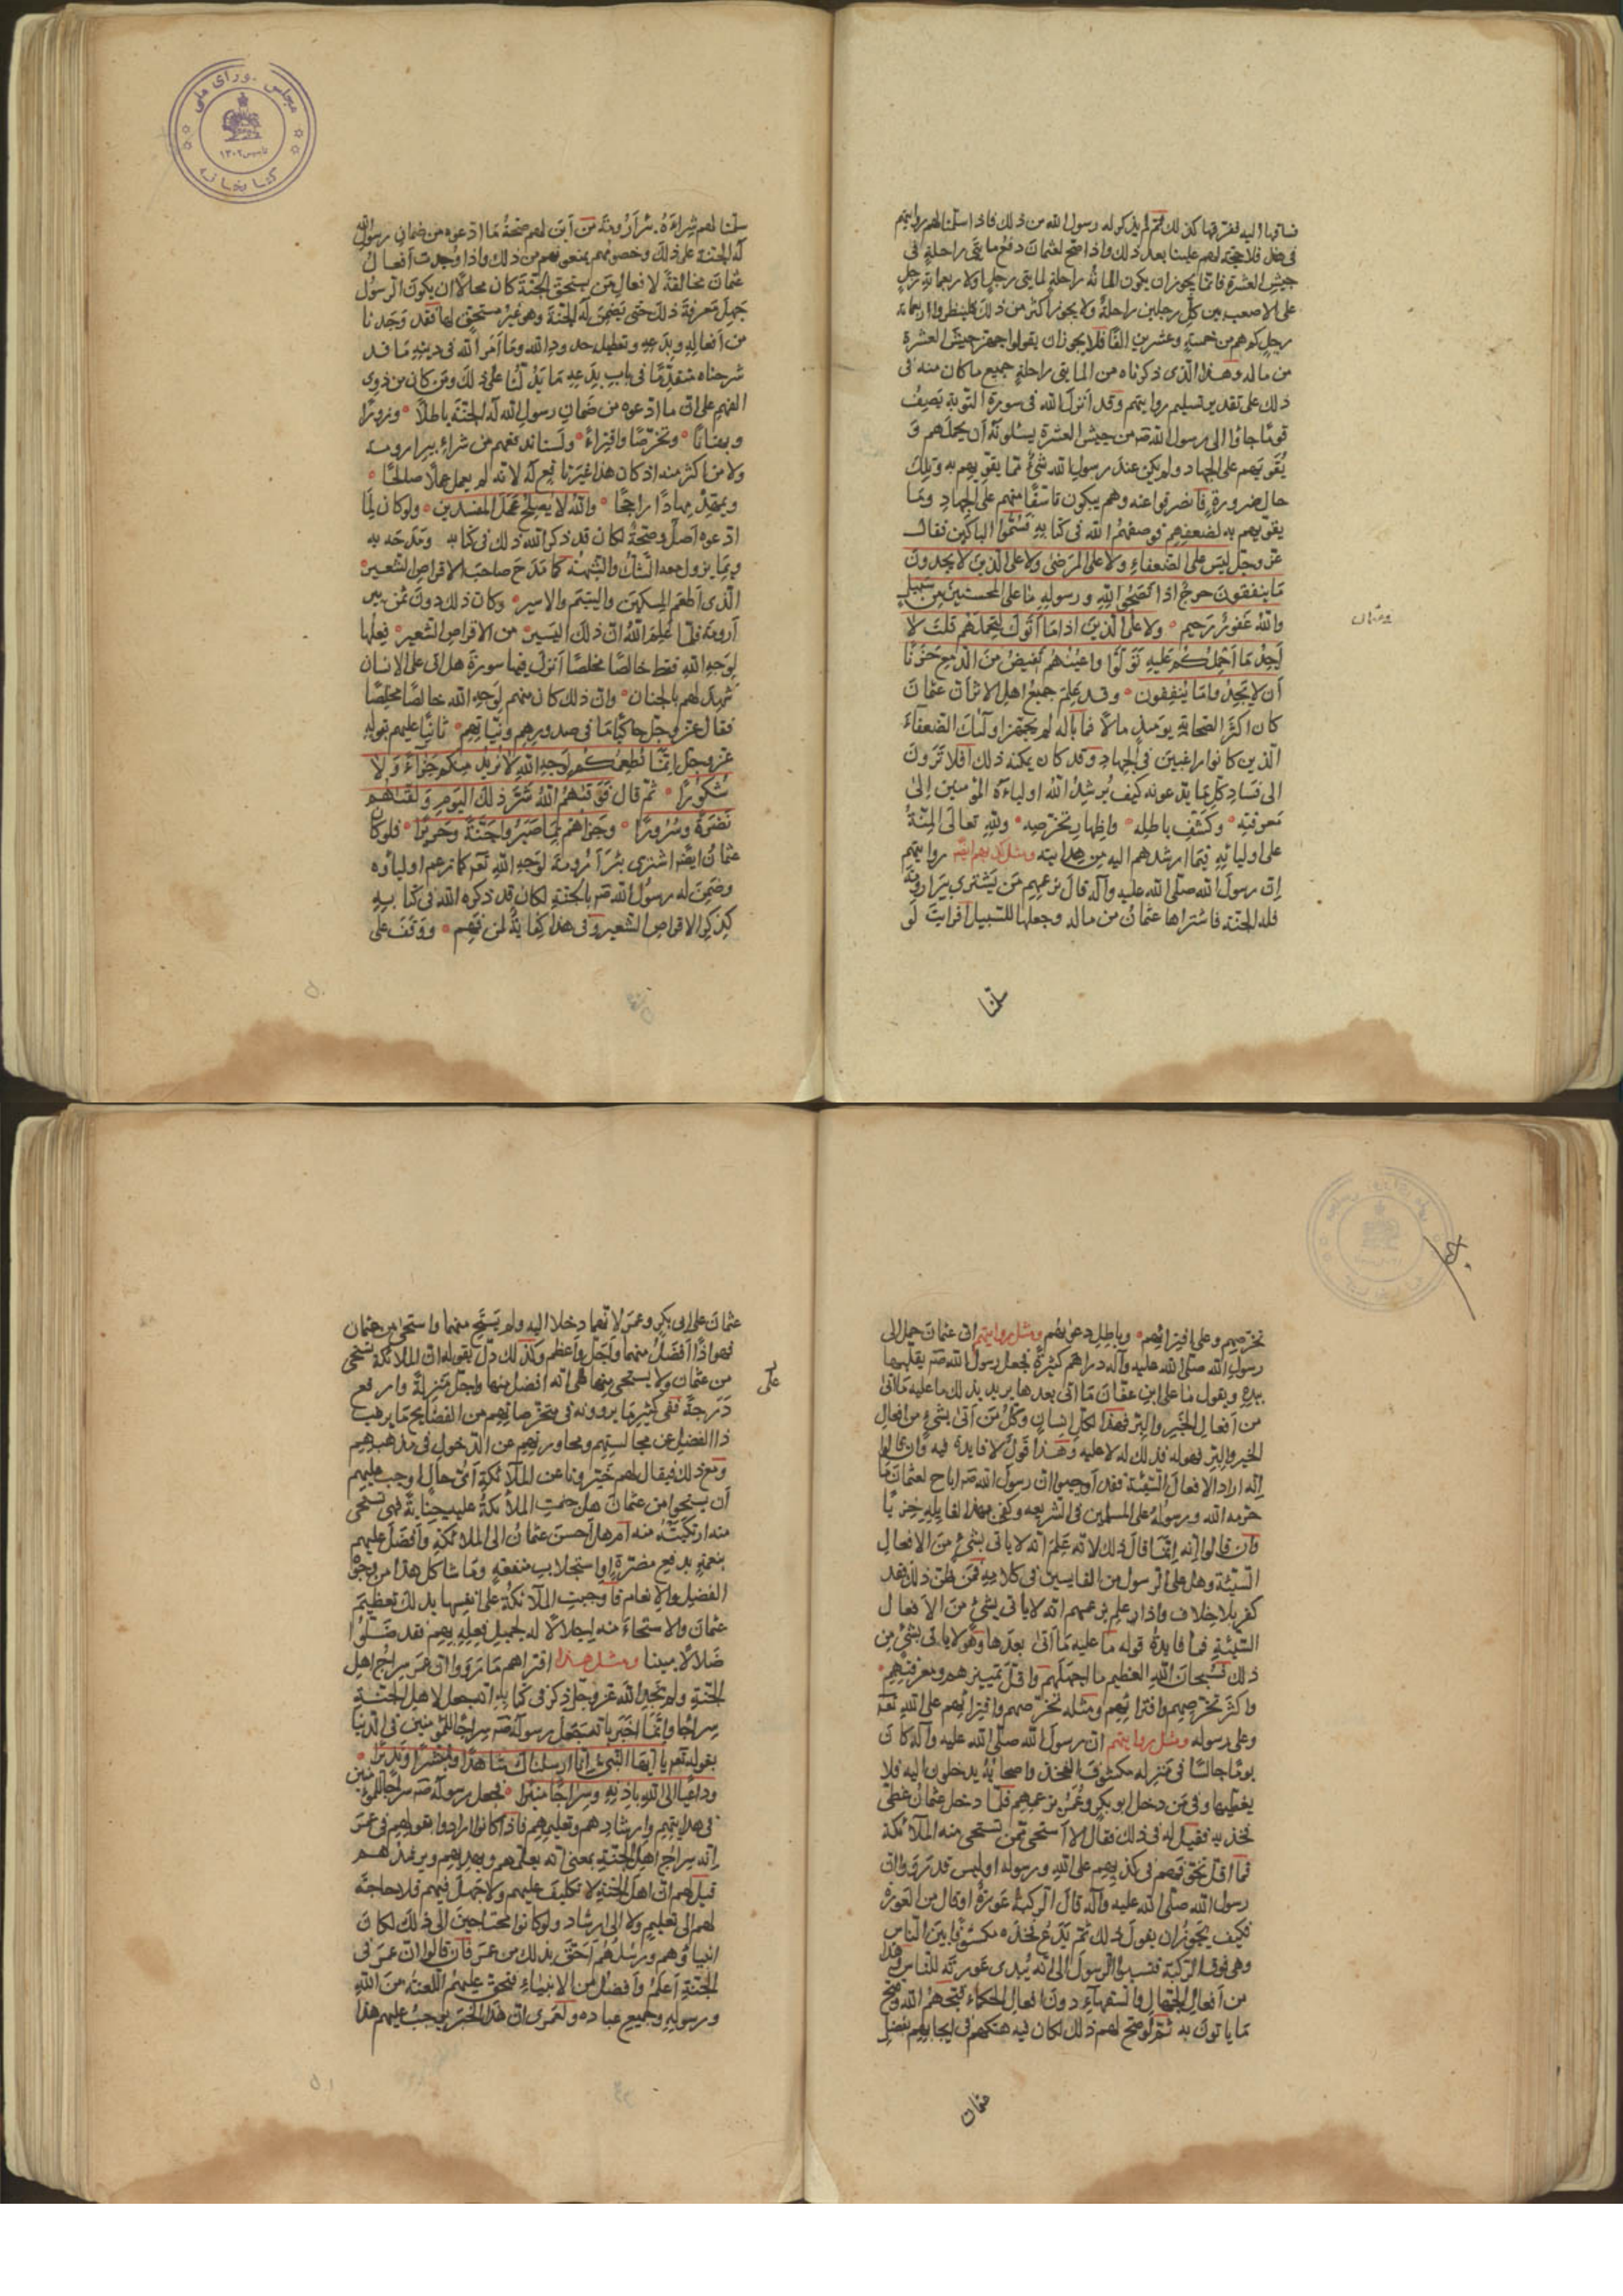 فساقها اليه ففرقها كذلك ثم لم يذكر له رسول الله من ذلك فاذا سلمنا لهم روايتهم
في فضل فلا حجة لهم علينا بعد ذلك واذا صح لعثمان دفع مايتي راحلة في
جيش العشرة فانما يجوز ان يكون المائة راحلة لمايتي رجل اولاربعمائة رجل
على الاصعب بين كل رجلين راحلة ولا يجوز اكثر من ذلك فلينظروا اربعمائة
رجل كم هم من خمسة وعشرين الفا فلا يجوز ان يقولوا جهز جيش العشرة
من ماله وهذا الذي ذكرناه من المايتي راحلة جميع ما كان منه في
ذلك على تقدير تسليم روايتهم وقد انزل الله في سورة التوبة يصف
قوما جاؤا الى رسول الله صه من جيش العشرة يسئلونه أن يحملهم و
يقويهم على الجهاد ولم يكن عند رسول الله شئ مما يقويهم به وتلك
حال ضرورة فانصرفوا عنه وهم يبكون تاسفا منهم على الجهاد وبما
يقويهم به لضعفهم فوصفهم الله في كتابه فسموا الباكين فقال
عز وجل ليس على الضعفاء ولا على المرضى ولا على الذين لا يجدون
ما ينفقون حرج اذا نصحوا لله ورسوله ما على المحسنين من سبيل
والله غفور رحيم ولا على الذين اذا ما أتوك لتحملهم قلت لا
أجد ما أحملكم عليه تولوا واعينهم تفيض من الدمع حزنا
أن لا يجدوا ما ينفقون وقد علم جميع اهل الاثر أن عثمان
كان اكثر الصحابة يومئذ مالا فما باله لم يجهز اولئك الضعفاء
الذين كانوا راغبين في الجهاد وقد كان يمكنه ذلك أفلا ترون
الى فساد كل ما يدعونه كيف يرشد الله اولياءه المؤمنين الى
معرفته وكشف باطله واظهار تخرصه ولله تعالى المنة
على اوليائه فيما ارشدهم اليه من هدايته ومثل كذبهم ايضا روايتهم
ان رسول الله صلى الله عليه وآله قال بزعمهم من يشتري بئر ارومة
فله الجنة فاشتراها عثمان من ماله وجعلها للسبيل افرايت لو
سلمنا
وعثمان
مجلس شورای ملی
تأسیس ۱۳۰۲
کتابخانه
سلمنا لهم شراءه بئر أرومة من أين لهم صحة ما ادعوه من ضمان رسول الله
له الجنة على ذلك وخصومهم يمنعونهم من ذلك واذا وجدت أفعال
عثمان مخالفة لافعال من يستحق الجنة كان محالا ان يكون الرسول
جهل معرفة ذلك حتى يضمن له الجنة وهو غير مستحق لها فقد وجدنا
من أفعاله وبدعه وتعطيل حدود الله وما أمر الله في دينه ما قد
شرحناه متقدما في باب بدعه ما يدلنا على ذلك ومن كان من ذوي
الفهم على ان ما ادعوه من ضمان رسول الله له الجنة باطلا وزورا
وبهتانا وتخرصا وافتراء ولسنا ندفعهم من شراء بير ارومة
ولا من اكثر منه اذ كان هذا غير نافع له لانه لم يعمل عملا صالحا
ويمهد مهادا راجحا والله لا يصلح عمل المفسدين ولو كان لما
ادعوه أصل وصحة لكان قد ذكر الله ذلك في كتابه ومدحه به
وبما يزول معه الشك والشبهة كما مدح صاحب الاقراص الشعير
الذي أطعم المسكين واليتيم والاسير وكان ذلك دون ثمن بير
أرومة فلما علم الله ان ذلك اليسير من الاقراص الشعير فعلها
لوجه الله فقط خالصا مخلصا أنزل فيها سورة هل اتى على الانسان
شهد لهم بالجنان وان ذلك كان منهم لوجه الله خالصا مخلصا
فقال عز وجل حاكيا ما في صدورهم ونياتهم ثانيا عليهم بقوله
عز وجل انما نطعمكم لوجه الله لا نريد منكم جزاء ولا
شكورا ثم قال فوقيهم الله شر ذلك اليوم ولقيهم
نضرة وسرورا وجزاهم بما صبروا جنة وحريرا فلو كان
عثمان ايضا اشترى بئر أرومة لوجه الله تعا كما زعم اولياؤه
وضمن له رسول الله صه بالجنة لكان قد ذكره الله في كتابه
كذكر الاقراص الشعير وفي هذا كفاية لمن فهم ووقف على
تخرصهم وعلى افترائهم وباطل دعويهم ومثل روايتهم ان عثمان حمل الى
رسول الله صلى الله عليه وآله دراهم كثيرة فجعل رسول الله صه يقلبها
بيده ويقول ما على ابن عفان ما اتى بعدها يريد بذلك ما عليه ما اتى
من أفعال الخير والبر فهذا لكل انسان وكل من أتى بشئ من افعال
الخير والبر فهو له فذلك له لا عليه وهذا قول لا فايدة فيه وان قالوا
انه اراد الافعال السيئة فقد أوجبوا ان رسول الله صه اباح لعثمان ما
حرمه الله ورسوله على المسلمين في الشريعه وكفى بهذا لقايله خزيا
وان قالوا انه انما قال ذلك لانه علم انه لا ياتي بشئ من الافعال
السيئة وهل على الرسول من الفايسين في كلامه فمن ظن ذلك فقد
كفر بلا خلاف واذا علم بزعمهم انه لا ياتي بشئ من الافعال
السيئة فما فايدة قوله ما عليه ما أتى بعدها وهو لا ياتي بشئ من
ذلك فسبحان الله العظيم ما اجهلهم واقل تمييزهم ومعرفتهم
واكثر تخرصهم وافترائهم ومثله تخرصهم وافترائهم على الله تعا
وعلى رسوله ومثل روايتهم ان رسول الله صلى الله عليه وآله كان
يوما جالسا في منزله مكشوف الفخذ واصحابه يدخلون اليه فلا
يغطيها وفي من دخل ابو بكر وعمر بزعمهم فلما دخل عثمان غطى
فخذيه فقيل له في ذلك فقال الا أستحي ممن تستحي منه الملائكة
فما اقل تحققهم في كذبهم على الله ورسوله اوليس قد رووا ان
رسول الله صلى الله عليه وآله قال الركبة عورة او قال من العورة
فكيف يجوز ان يقول ذلك ثم يدع فخذه مكشوفا بين الناس
وهي فوق الركبة فنسبوا الرسول الى انه يبدي عورته للناس وهذا
من أفعال الجهال والسفهاء دون افعال الحكماء قبحهم الله وقبح
ما ياتون به ثم لو صح لهم ذلك لكان فيه هتكهم في ايجابهم بفضل
عثمان
عثمان على ابي بكر وعمر لانهما دخلا اليه ولم يستح منهما واستحى من عثمان
فهو اذا أفضل منهما وأجل وأعظم وكذلك دل بقوله ان الملائكة تستحي
من عثمان ولا يستحي منهما على انه افضل منهما واجل منزلة وارفع
درجة ففي كثير ما يروونه في تخرصاتهم من الفضايح ما يرغب
ذا الفضل عن مجالستهم ومحاورتهم عن الدخول في مذهبهم
ومع ذلك فيقال لهم خبرونا عن الملائكة أي حال اوجب عليهم
أن يستحيوا من عثمان هل جنت الملائكة عليه جناية فهي تستحي
منه ارتكبته منه أم هل أحسن عثمان الى الملائكة وأفضل عليهم
بنعمة بدفع مضرة او استجلاب منفعة وما شاكل هذا من وجوه
الفضل والانعام فأوجبت الملائكة على انفسها بذلك تعظيم
عثمان والاستحاء منه اجلالا له لجميل فعله بهم فقد ضلوا
ضلالا مبينا ومثل هذا افتراهم ما رووا ان عمر سراج اهل
الجنة ولم نجد الله عز وجل ذكر في كتابه انه جعل لاهل الجنة
سراجا وانما اخبر بانه جعل رسوله صه سراجا للمؤمنين في الدنيا
بقوله تعا يا أيها النبي انا ارسلناك شاهدا ومبشرا ونذيرا
وداعيا الى الله باذنه وسراجا منيرا فجعل رسوله صه سراجا للمؤمنين
في هدايتهم وارشادهم وتعليمهم فاذا كانوا ارادوا بقولهم في عمر
انه سراج اهل الجنة بمعنى انه يعلمهم ويهديهم ويرشدهم
قيل لهم ان اهل الجنة لا تكليف عليهم ولا جهل فيهم فلا حاجة
لهم الى تعليم ولا الى ارشاد ولو كانوا محتاجين الى ذلك لكان
انبياؤهم ورسلهم أحق بذلك من عمر فان قالوا ان عمر في
الجنة أعلم وأفضل من الانبياء فتحق عليهم اللعنة من الله
ورسوله وجميع عباده ولعمري ان هذا الخبر يوجب عليهم هذا
على